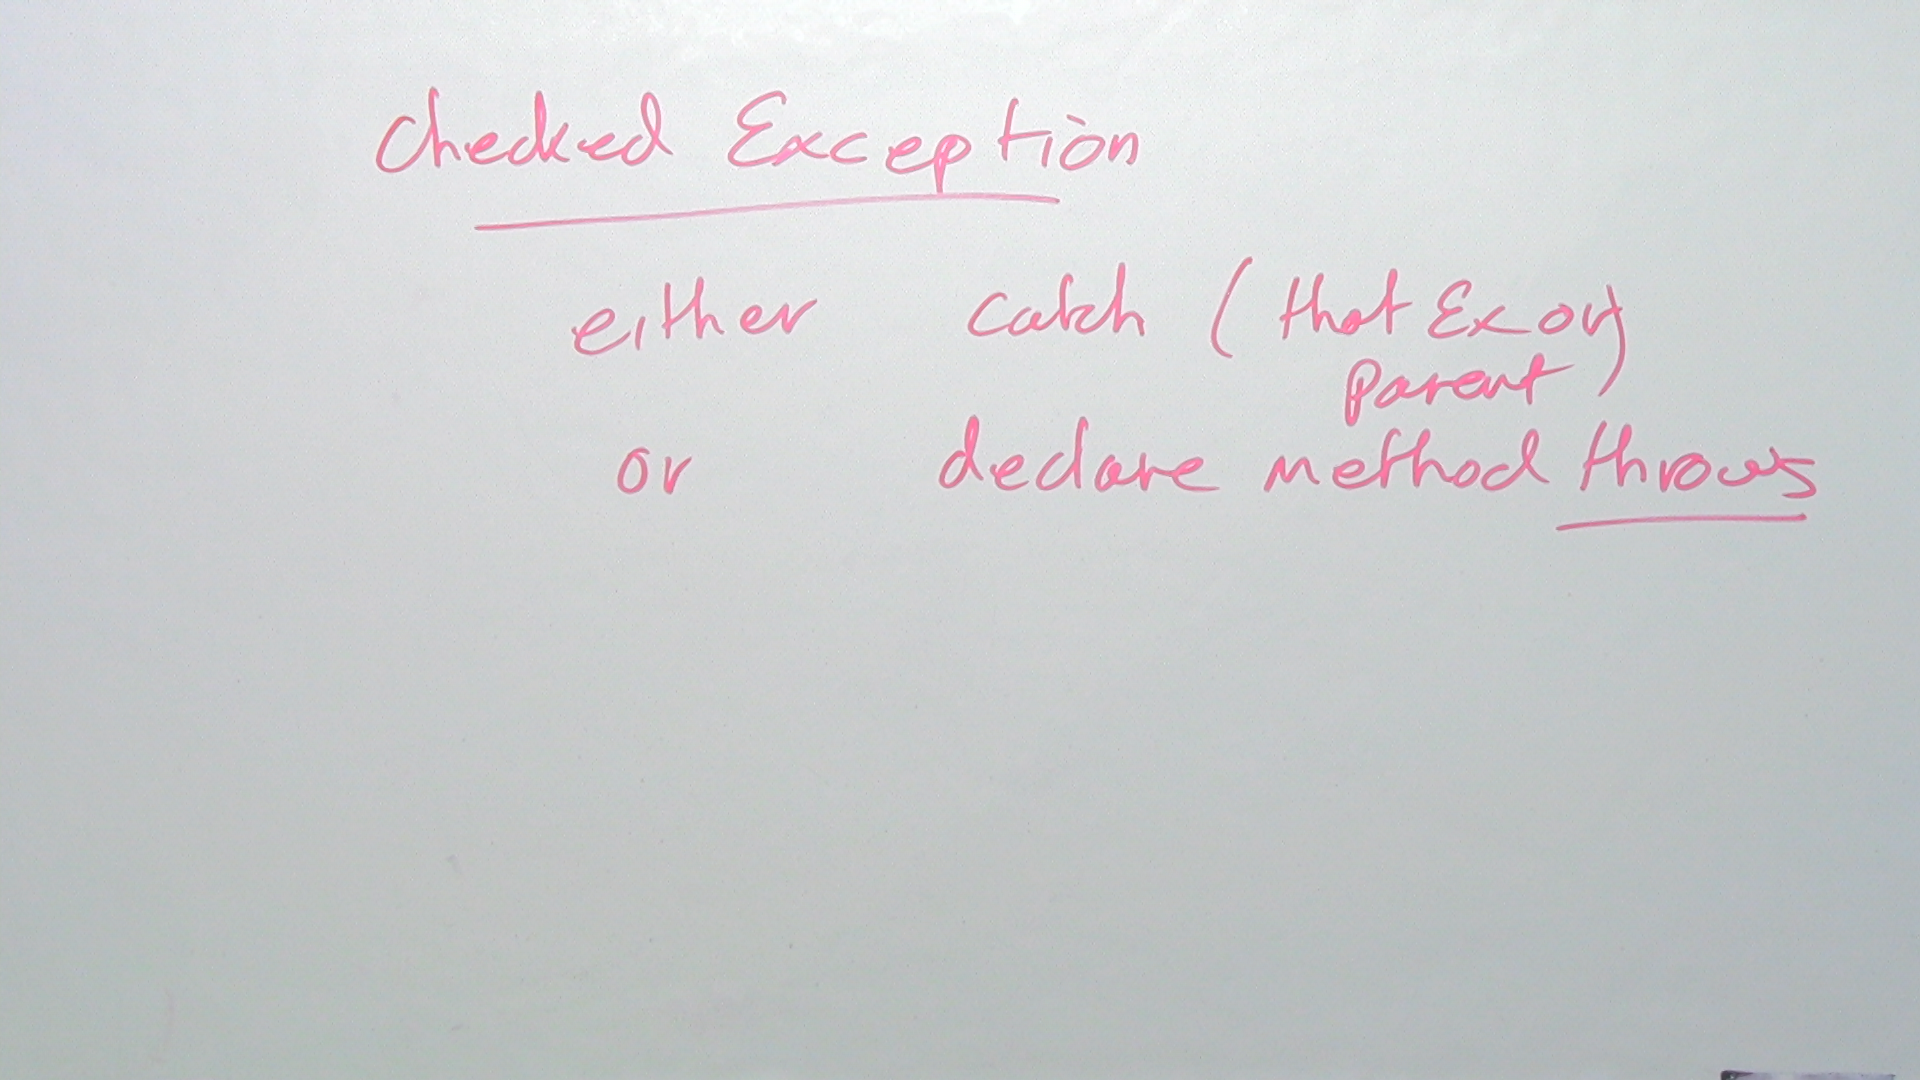 Checked Exception
either catch (that Ex or
parent)
or declare method throws